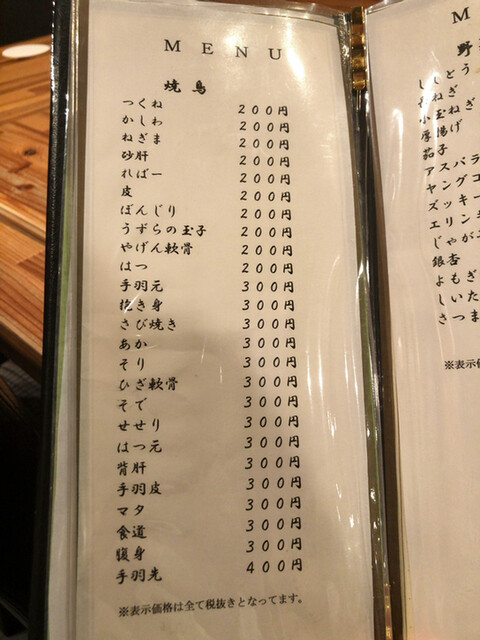 MENU
焼鳥
つくね 200円
かしわ 200円
ねぎま 200円
砂肝 200円
ればー 200円
皮 200円
ぼんじり 200円
うずらの玉子 200円
やげん軟骨 200円
はつ 200円
手羽元 300円
挽き身 300円
さび焼き 300円
あか 300円
そり 300円
ひざ軟骨 300円
そで 300円
せせり 300円
はつ元 300円
背肝 300円
手羽皮 300円
マタ 300円
食道 300円
腹身 300円
手羽先 400円
※表示価格は全て税抜きとなってます。
M
野
ししとう
長ねぎ
小玉ねぎ
厚揚げ
茄子
アスパラ
ヤングコ
ズッキー
エリン
じゃが
銀杏
よもぎ
しいた
さつま
※表示価